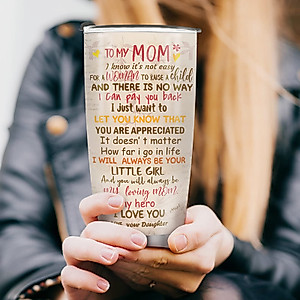 TO MY MOM
I know it's not easy
FOR A WOMAN TO RAISE A child
AND THERE IS NO WAY
I can pay you back
I Just want to
LET YOU KNOW THAT
YOU ARE APPRECIATED
It doesn't matter
How far i go in life
I WILL ALWAYS BE YOUR
LITTLE GIRL
And you will always be
my loving MOM
my hero
I LOVE YOU
your Daughter